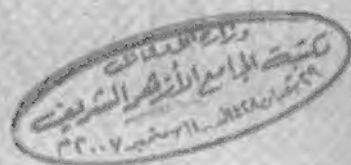 وزارة
مكتبة الجامع الأزهر الشريف
٢٩ شعبان ١٤٢٨هـ - ١١ سبتمبر ٢٠٠٧م